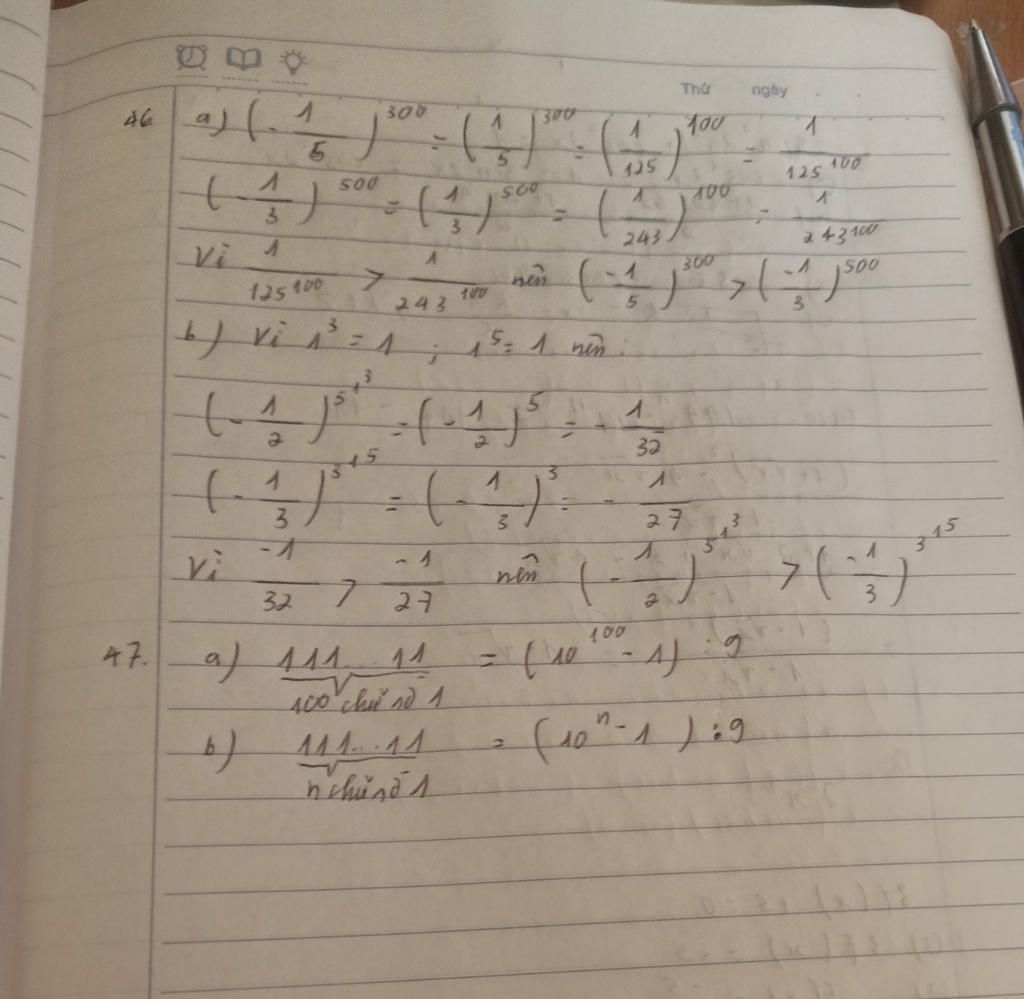 Thứ ngày . .
46. a) (-1/5)^300 = (1/5)^300 = (1/125)^100 = 1/125^100
(-1/3)^500 = (1/3)^500 = (1/243)^100 = 1/243^100
Vì 1/125^100 > 1/243^100 nên (-1/5)^300 > (-1/3)^500
b) Vì 1^3 = 1 ; 1^5 = 1 nên:
(-1/2)^5^1^3 = (-1/2)^5 = -1/32
(-1/3)^3^1^5 = (-1/3)^3 = -1/27
Vì -1/32 > -1/27 nên (-1/2)^5^1^3 > (-1/3)^3^1^5
47. a) 111...11 = (10^100 - 1) : 9
100 chữ số 1
b) 111...11 = (10^n - 1) : 9
n chữ số 1